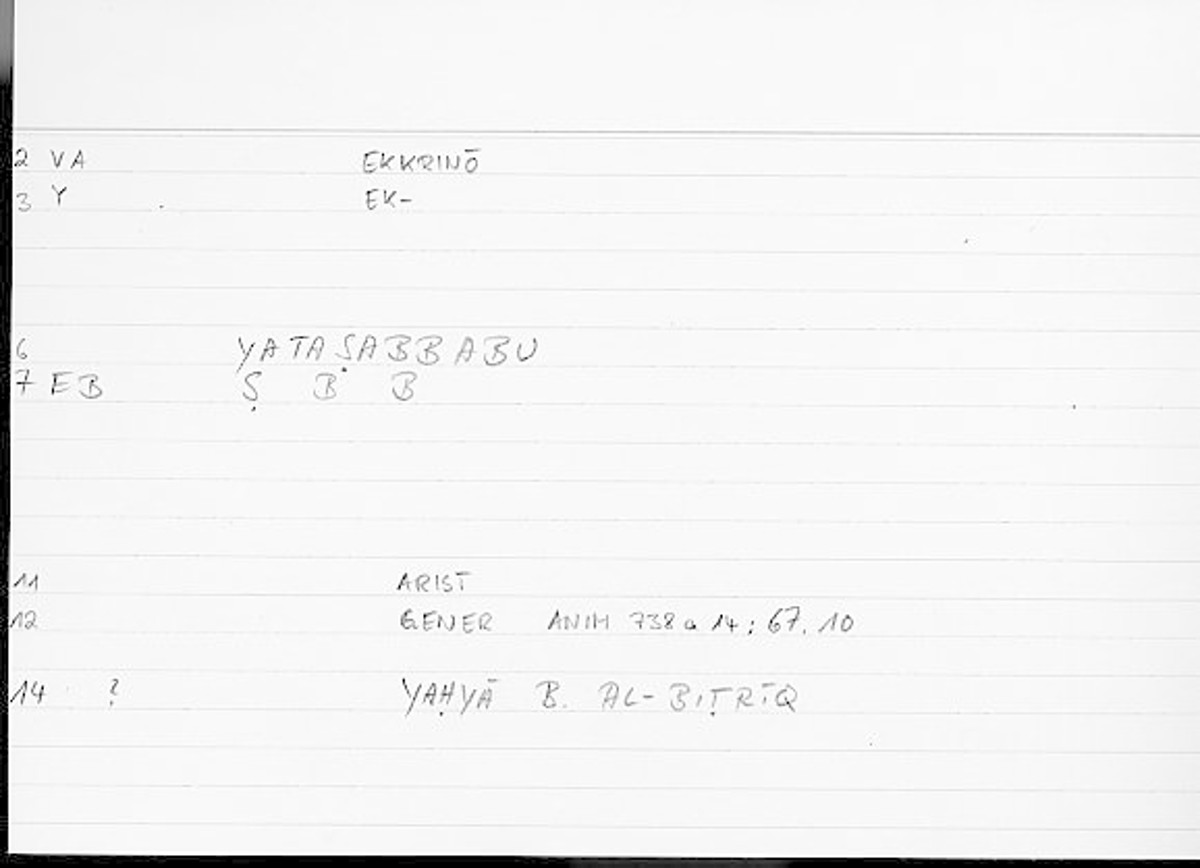 2 VA EKKRINŌ
3 Y EK-
6 YATAṢABBABU
7 EB Ṣ B B
11 ARIST
12 GENER ANIM 738 a 14 ; 67. 10
14 ? YAḤYĀ B. AL-BIṬRĪQ